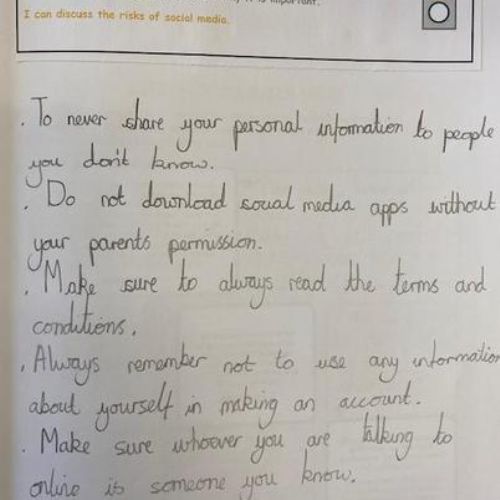 it is important.
I can discuss the risks of social media.
. To never share your personal information to people
you don't know.
. Do not download social media apps without
your parents permission.
. Make sure to always read the terms and
conditions.
. Always remember not to use any information
about yourself in making an account.
. Make sure whoever you are talking to
online is someone you know.